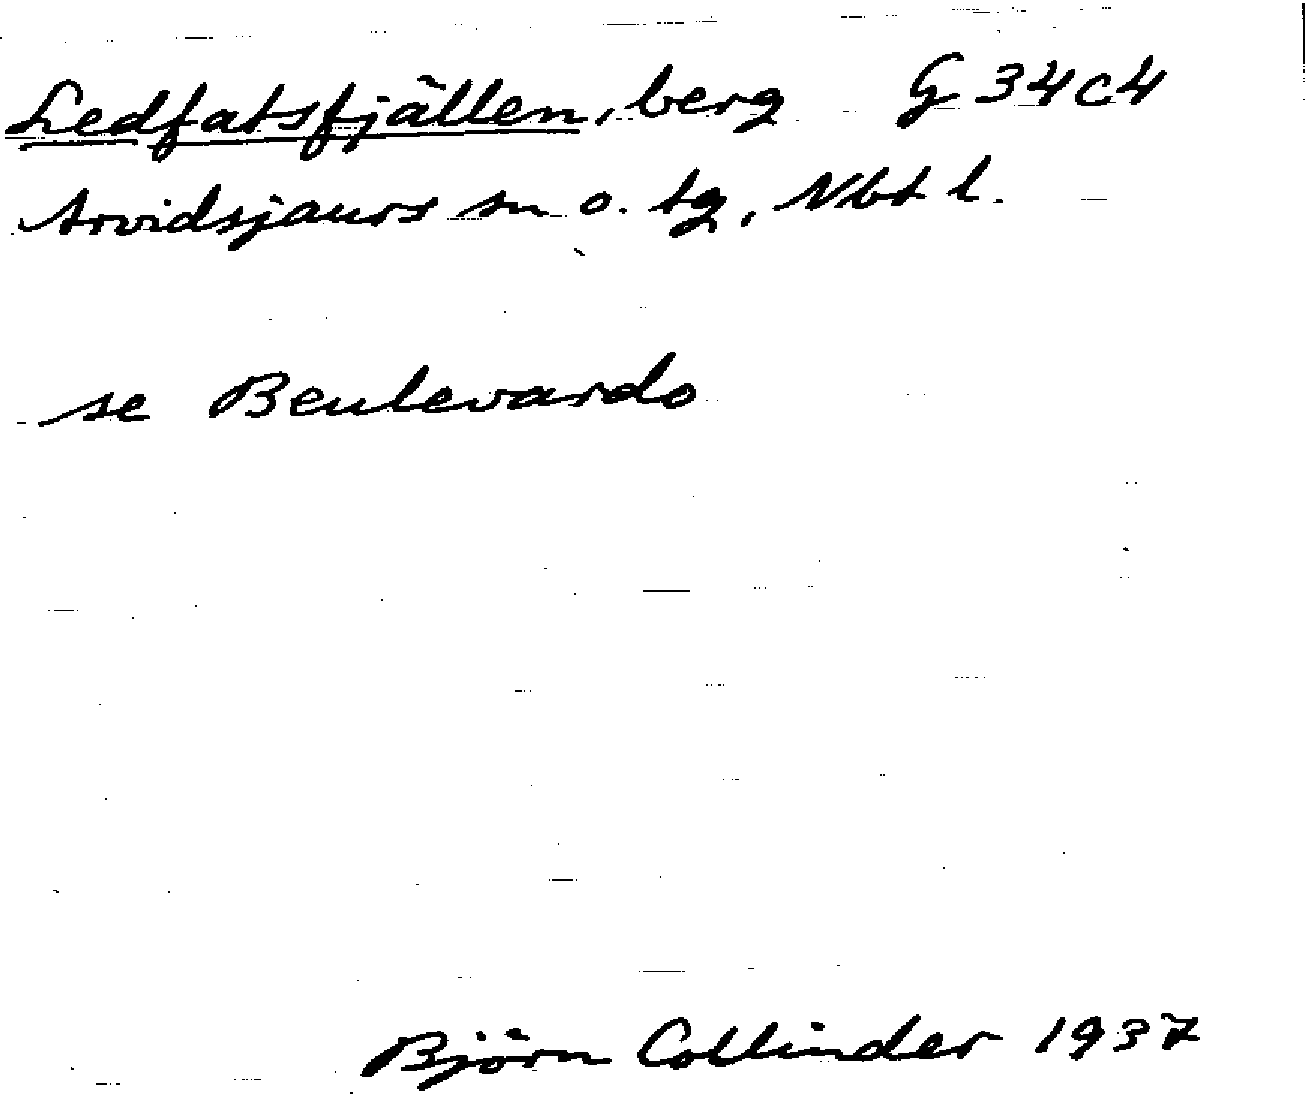 Ledfatsfjällen, berg G 34c4
Arvidsjaurs sn o. tg, Nbt l.
se Beulevardo
Björn Collinder 1937